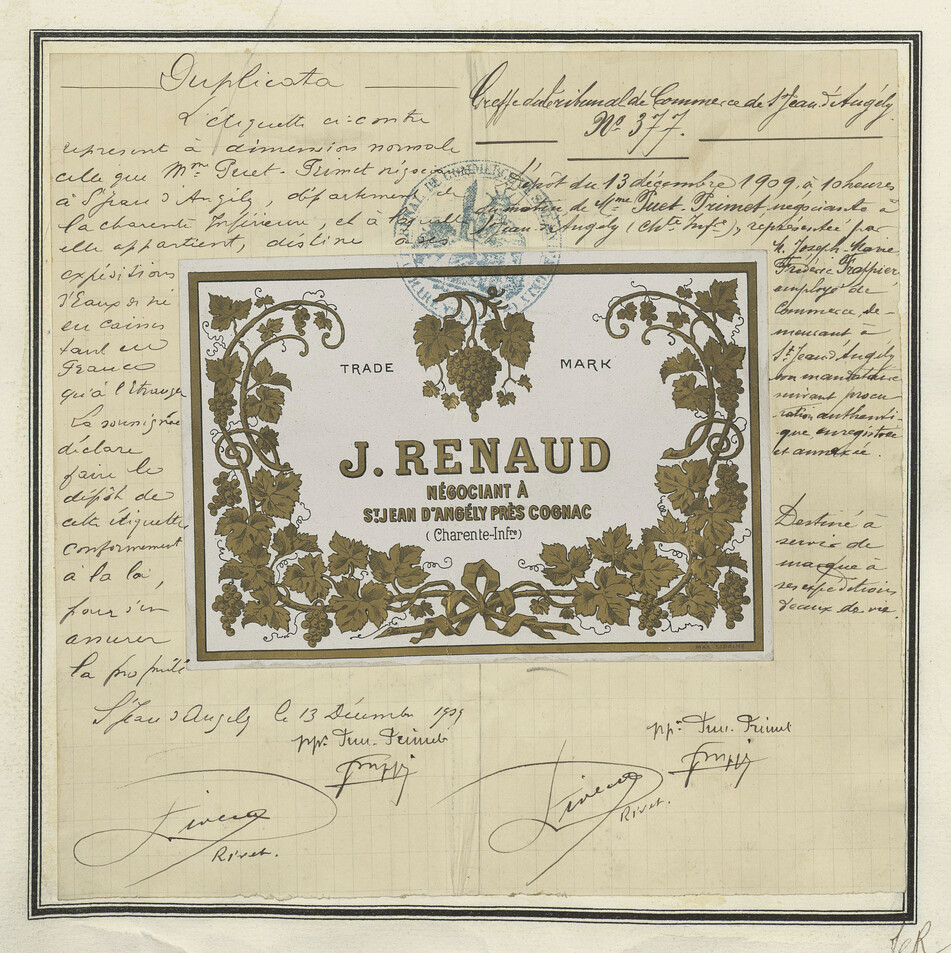 Duplicata
L'étiquette ci-contre
represent à dimension normale
celle que Mme Puet-Primet négociante
à St Jean d'Angély département de
la charente Inférieure, et à laquelle
elle appartient, destine à ses
expéditions
d'Eaux de vie
en caisses
tant en
France
qu'à l'étranger
La soussignée
déclare
faire le
dépôt de
cette étiquette
conformement
à la loi,
pour s'en
assurer
la propriété
St Jean d'Angély le 13 Décembre 1909
Rivet.
Greffe du Tribunal de Commerce de St Jean d'Angély
No 377.
Dépôt du 13 décembre 1909, à 10 heures
du matin de Mme Puet-Primet négociante à
St Jean d'Angély (Chte Infre), représentée par
M. Joseph-Marie
Frédéric Frappier
employé de
Commerce, de-
meurant à
St Jean d'Angély
son mandataire
suivant procu-
ration authenti-
que enregistrée
et annexée.
Destiné à
servir de
marque à
ses expéditions
d'eaux de vie
Rivet.
TRADE MARK
J. RENAUD
NÉGOCIANT À
ST JEAN D'ANGÉLY PRÈS COGNAC
(Charente-Infre)